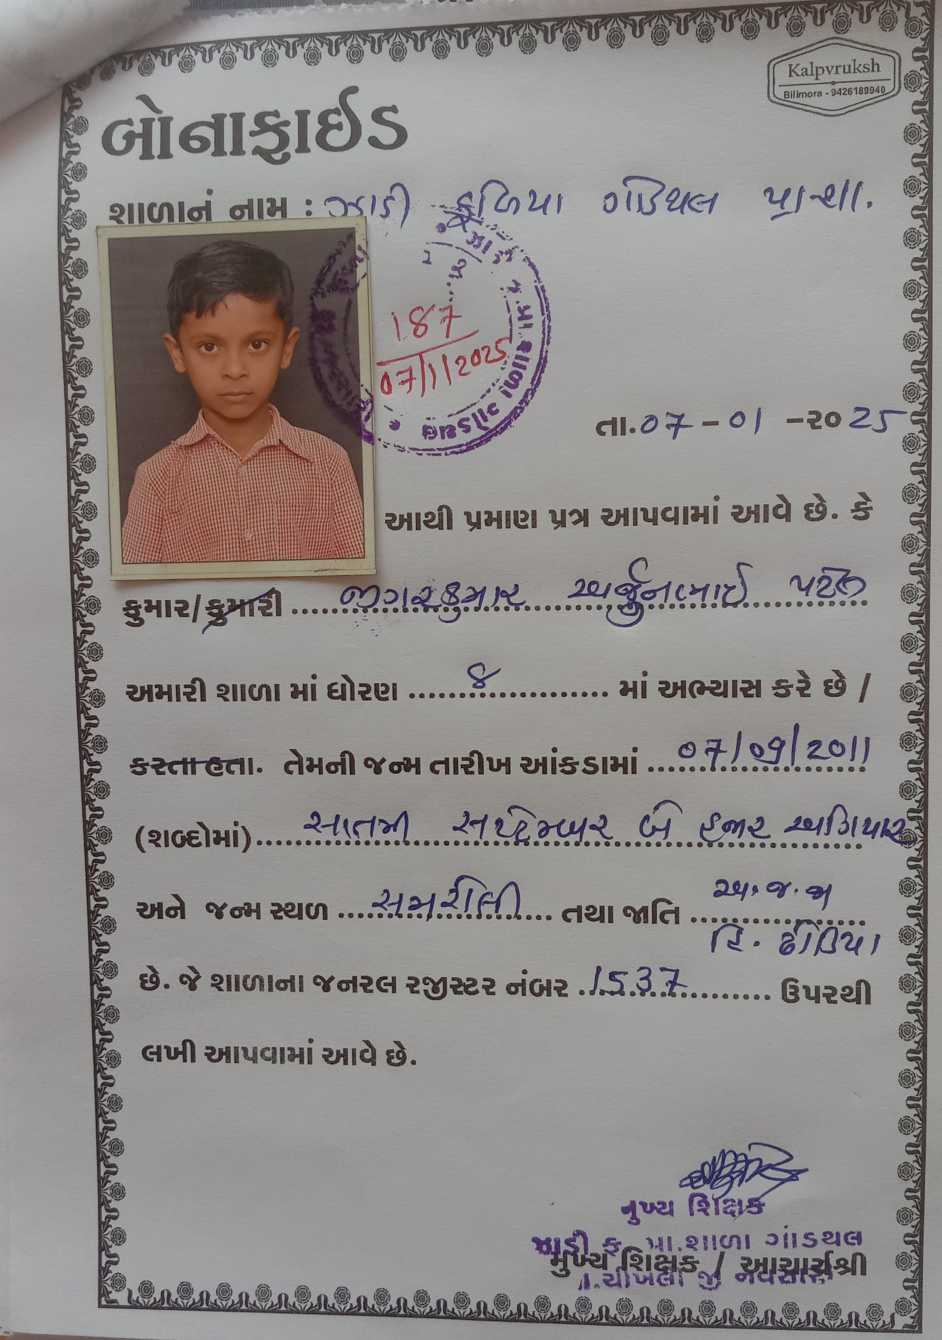 Kalpvruksh
Bilimora - 9426189949
બોનાફાઈડ
શાળાનં નામ : ઝાડી ફળિયા ગોડથલ પ્રા શા.
187
07/1/2025
તા.૦7 - ૦1 -૨૦ 25
આથી પ્રમાણ પત્ર આપવામાં આવે છે. કે
કુમાર/કુમારી ...... જીગરકુમાર અર્જુનભાઈ પટેલ
અમારી શાળા માં ધોરણ ...... ૪ ...... માં અભ્યાસ કરે છે /
કરતા હતા. તેમની જન્મ તારીખ આંકડામાં ... 07/09/2011
(શબ્દોમાં) ... સાતમી સપ્ટેમ્બર બે હજાર અગિયાર
અને જન્મ સ્થળ ...... તથા જાતિ ... અ.જ.જા
હિ. ઢોડિયા
છે. જે શાળાના જનરલ રજીસ્ટર નંબર .1537............ ઉપરથી
લખી આપવામાં આવે છે.
મુખ્ય શિક્ષક
ઝાડી ફ. પ્રા.શાળા ગોડથલ
મુખ્ય શિક્ષક / આચાર્યશ્રી
તા.ચીખલી જી નવસારી